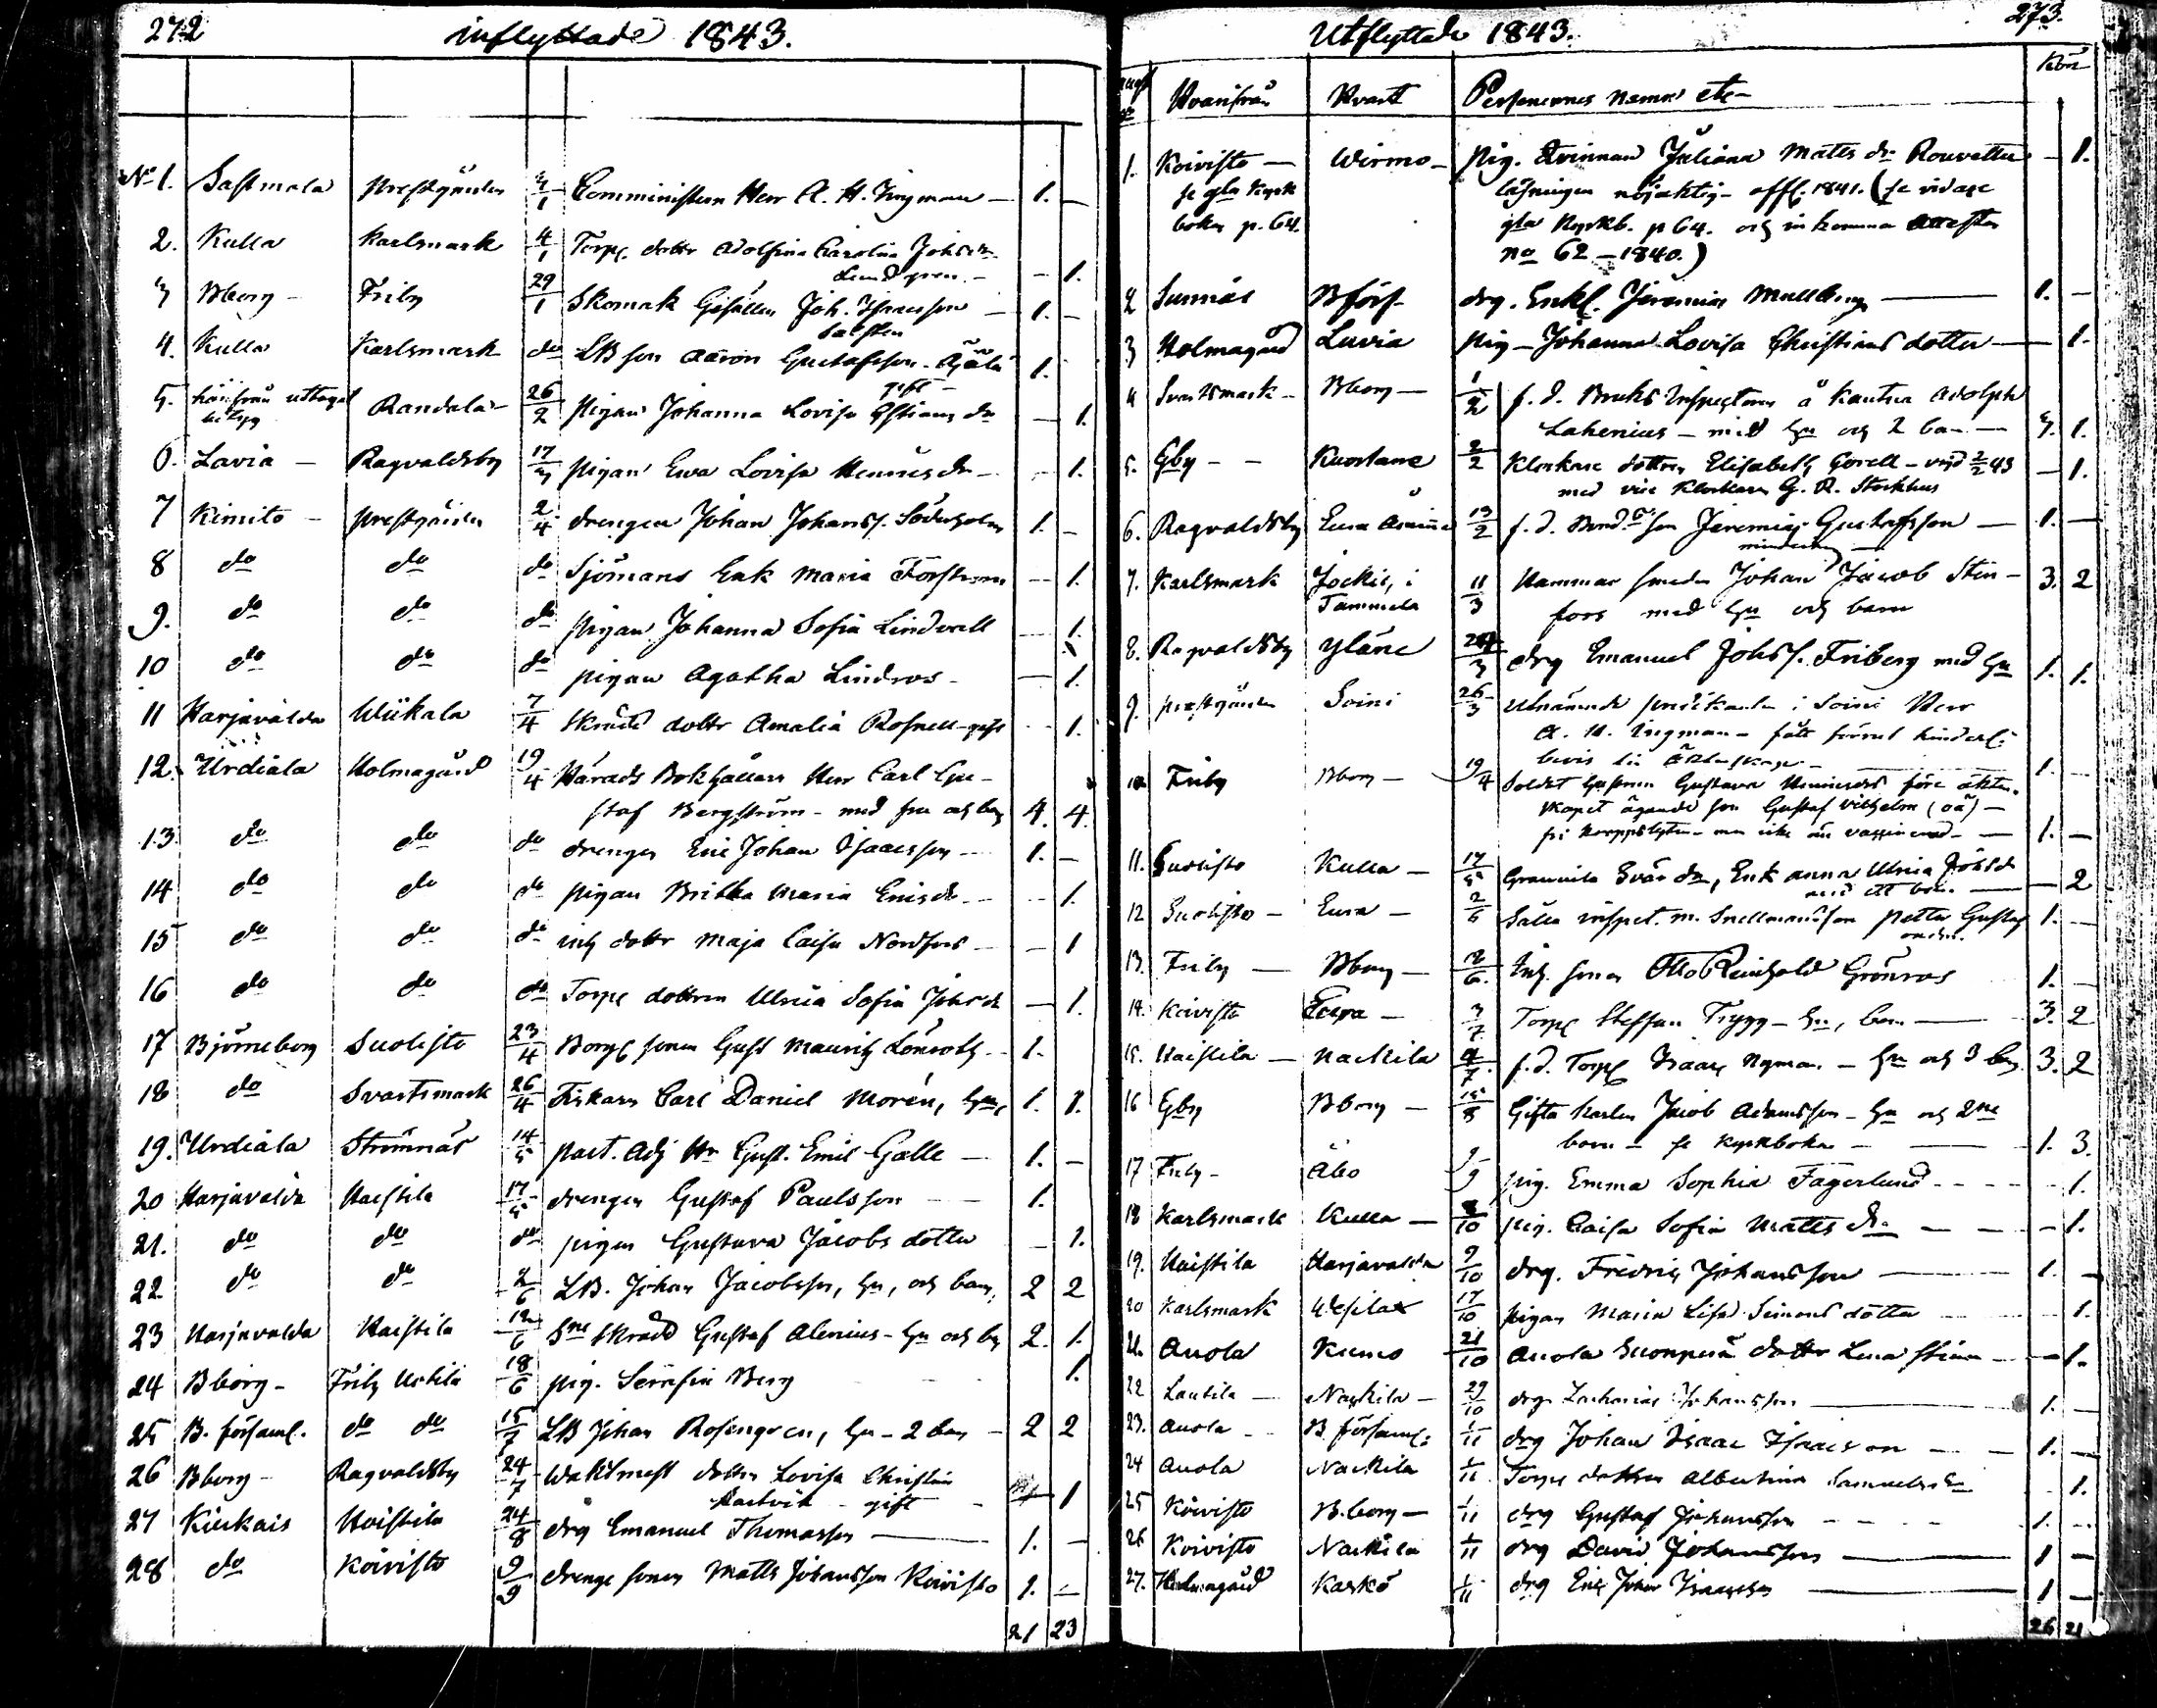 272 inflyttade 1843.
No 1. Sastmola prestgården 4/1 Comministern Herr A. H. Ingman — 1. —
2. Kulla Karlsmark 4/1 Torp. dottr Adolfina Carolina Johsdr
Lundgren — — 1.
3 Bborg — Friby 29/1 Skomak Gesällen Joh. Isacsson — 1. —
4. Kulla Karlsmark do LB son Aaron Gustafsson 1.
5. Randala 26/2 pigan Johanna Lovisa dr — 1.
6. Lavia — Ragvaldsby 17/3 pigan Ewa Lovisa Henricsdr — — 1.
7 Kimito — prestgården 2/4 drengen Johan Johanss. Söderholm 1. —
8 do do do Sjömans Enk Maria Forsström — 1.
9. do do do pigan Johanna Sofia Lindvall — 1.
10 do do do pigan Agatha Lindros — — 1.
11 Harjavalda Wiikala 7/4 Skrädd dottr Amalia Rosnell — 1.
12. Urdiala Holmagård 19/4 Härads Bokhållare Herr Carl Gu-
staf Bergström — med fru och barn 4. 4.
13 do do do drengen Eric Johan Isaacsson — 1. —
14 do do do pigan Britha Maria Ericsdr — — 1.
15 do do do inh dottr Maja Caisa Nordfors — — 1
16 do do do Torp dottren Ulrica Sofia Johsdr — 1.
17 Björneborg Suolisto 23/4 Borg sonen Gust Mauritz Lönroth — 1.
18 do Svartsmark 26/4 Fiskaren Carl Daniel Morén, hu, 1. 1.
19. Urdiala Strömnäs 14/5 past. Adj Hr Gust. Emil Gallé — 1. —
20 Harjavalda Haistila 17/5 drengen Gustaf Paulsson — 1.
21. do do do pigan Gustava Jacobs dotter — 1.
22 do do 2/6 LB. Johan Jacobsson, hu, och barn, 2 2
23 Harjavalda Haistila 12/6 Sne skrädd Gustaf Alenius — hu och bn 2. 1.
24 Bborg — Friby 18/6 pig. Serafia Berg 1.
25 B. församl. do do 15/7 LB Johan Rosengren, hu — 2 barn — 2 2
26 Bborg — Ragvaldsby 24/7 Waktmest dottr Lovisa Christina
gift — 1
27 Kiukais Haistila 24/8 drg Emanuel Thomasson — 1. —
28 do Koivisto 9/9 drenge sonen Matts Johansson Koivisto 1. —
21 23
Utflyttade 1843. 273.
Hvarifrån Hvart Personernes namn etc — Kön
1. Koivisto — Wirmo — pig. Qvinnan Juliana Matts dr Rouvettu — 1.
se gla Kyrk
boken p. 64.
läsningen nöjaktig — affl. 1841. (se vidare
gla Kyrkb. p 64. och inkomna attester
no 62 — 1840.)
2 Sunnäs B förs. drg. Enkl. Jeremias Mullberg — 1. —
3 Holmagård Luvia pig — Johanna Lovisa Christians dotter — 1.
4 Svartsmark — Bborg — 1/2 f. d. Bruks Inspectoren å Kauttua Adolph
Lahenius — med hu och 2 ba — 3. 1.
5. Gby — — Kuortane 2/2 Klockare dottren Elisabeth Gorell — vigd 2/2 43 — 1.
med vice Klockaren G. R. Stockhus
6. Ragvaldsby Eura 13/2 f. d. Bond. son Jeremias Gustafsson — 1. —
7. Karlsmark Jockis, i
Tammela 11/3 Hammar smeden Johan Jacob Sten-
fors med hu och barn 3. 2
8. Ragvaldsby Yläne 24/3 drg Emanuel Johss. Friberg med hu 1. 1.
9. prestgården Soini 26/3 Utnämnde predikanten i Soini Herr
A. H. Ingman — fått förrut hinderl.
bevis 1. —
10 Friby Bborg — 19/4 Soldat hustrun Gustava Henricsdrs före äkten-
skapet ägande son Gustaf Vilhelm (oä) —
fri koppskyten — men icke än vaccinerad — 1. —
11. Suolisto Kulla — 17/5 Enk Anna Ulrica Johsdr
med ett barn — — 2
12 Suolisto — Eura — 2/6 inspect. m. Snellmans son Petter Gustaf 1. —
13. Friby — Bborg — 2/6. Inh. sonen Otto Reinhold Grönroos 1. —
14. Koivisto — 3/7 Torp Steffan Trygg — hu, barn — 3. 2
15. Haistila — Nackila 4/7 f. d. Torp Isaac Nyman — hu och 3 barn 3. 2
16 Gby Bborg — 15/8 Gifta karlen Jacob Adamsson — hu och 2ne
barn — se kyrkboken — 1. 3.
17 Friby — Åbo 9/9 pig. Emma Sophia Fagerlund — — 1.
18 Karlsmark Kulla — 8/10 pig. Caisa Sofia Matts dr — — 1.
19. Haistila Harjavalda 9/10 drg. Fredric Johansson — 1. —
20 Karlsmark 17/10 pigan Maria Lisa Simons dotter — 1.
21. Anola Kumo 21/10 Anola Suonperä dottr Lena Stina — 1.
22 Lautila — Nackila — 29/10 drg. Zacharias Johansson 1. —
23. Anola — B församl. 1/11 drg Johan Isaac Isacsson — 1. —
24 Anola Nackila 1/11 Torp dotter Albertina Samuelsdr 1.
25 Koivisto B.borg — 1/11 drg Gustaf Johansson — 1. —
26 Koivisto Nackila 1/11 drg David Johansson — 1 —
27. Holmagård Kaskö 1/11 drg Eric Johan Isaacsson — 1 —
26 21